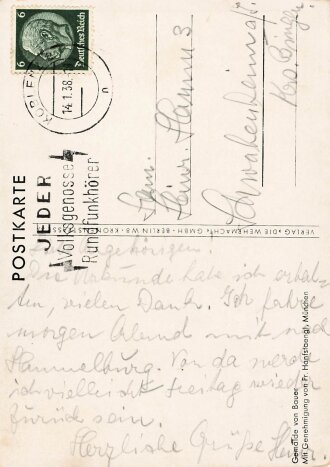 6 Deutsches Reich 6
KOBLENZ
14.1.38
n
JEDER
Volksgenosse
Rundfunkhörer
POSTKARTE
Fam.
Heinr. Hamm 3
Schwabenheim
Krs. Bingen
VERLAG »DIE WEHRMACHT« GMBH · BERLIN W8 · KRONENSTR
Gemälde von Bauer
Mit Genehmigung von Fr. Hanfstaengl, München
Angehörigen!
Die Urkunde habe ich erhal-
ten, vielen Dank. Ich fahre
morgen Abend mit nach
Hammelburg. Von da werde
ich vielleicht Freitag wieder
zurück sein.
Herzliche Grüße Heiner.